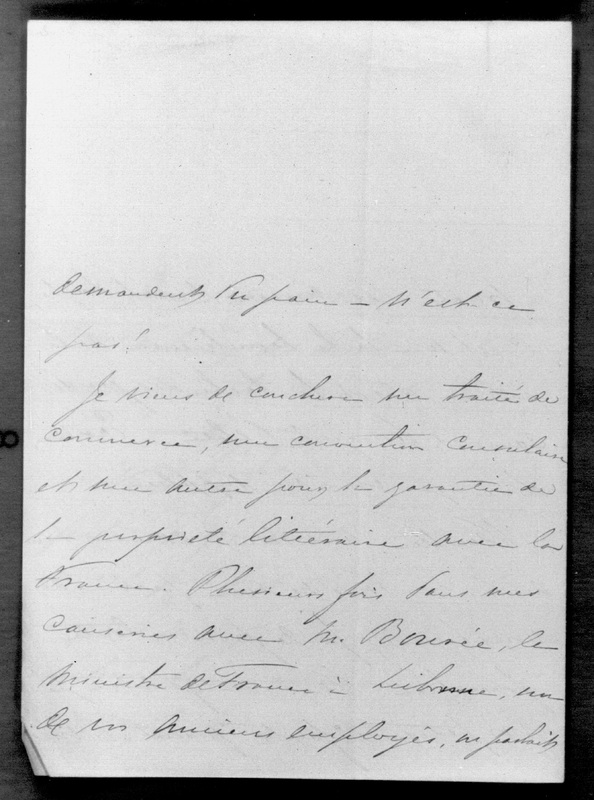 demandent du pain — N'est-ce
pas!
Je viens de conclure un traité de
commerce, une convention consulaire
et une autre pour la garantie de
la propriété littéraire avec la
France. Plusieurs fois dans mes
causeries avec M. Bourée, le
ministre de France à Lisbonne, un
de vos anciens employés,